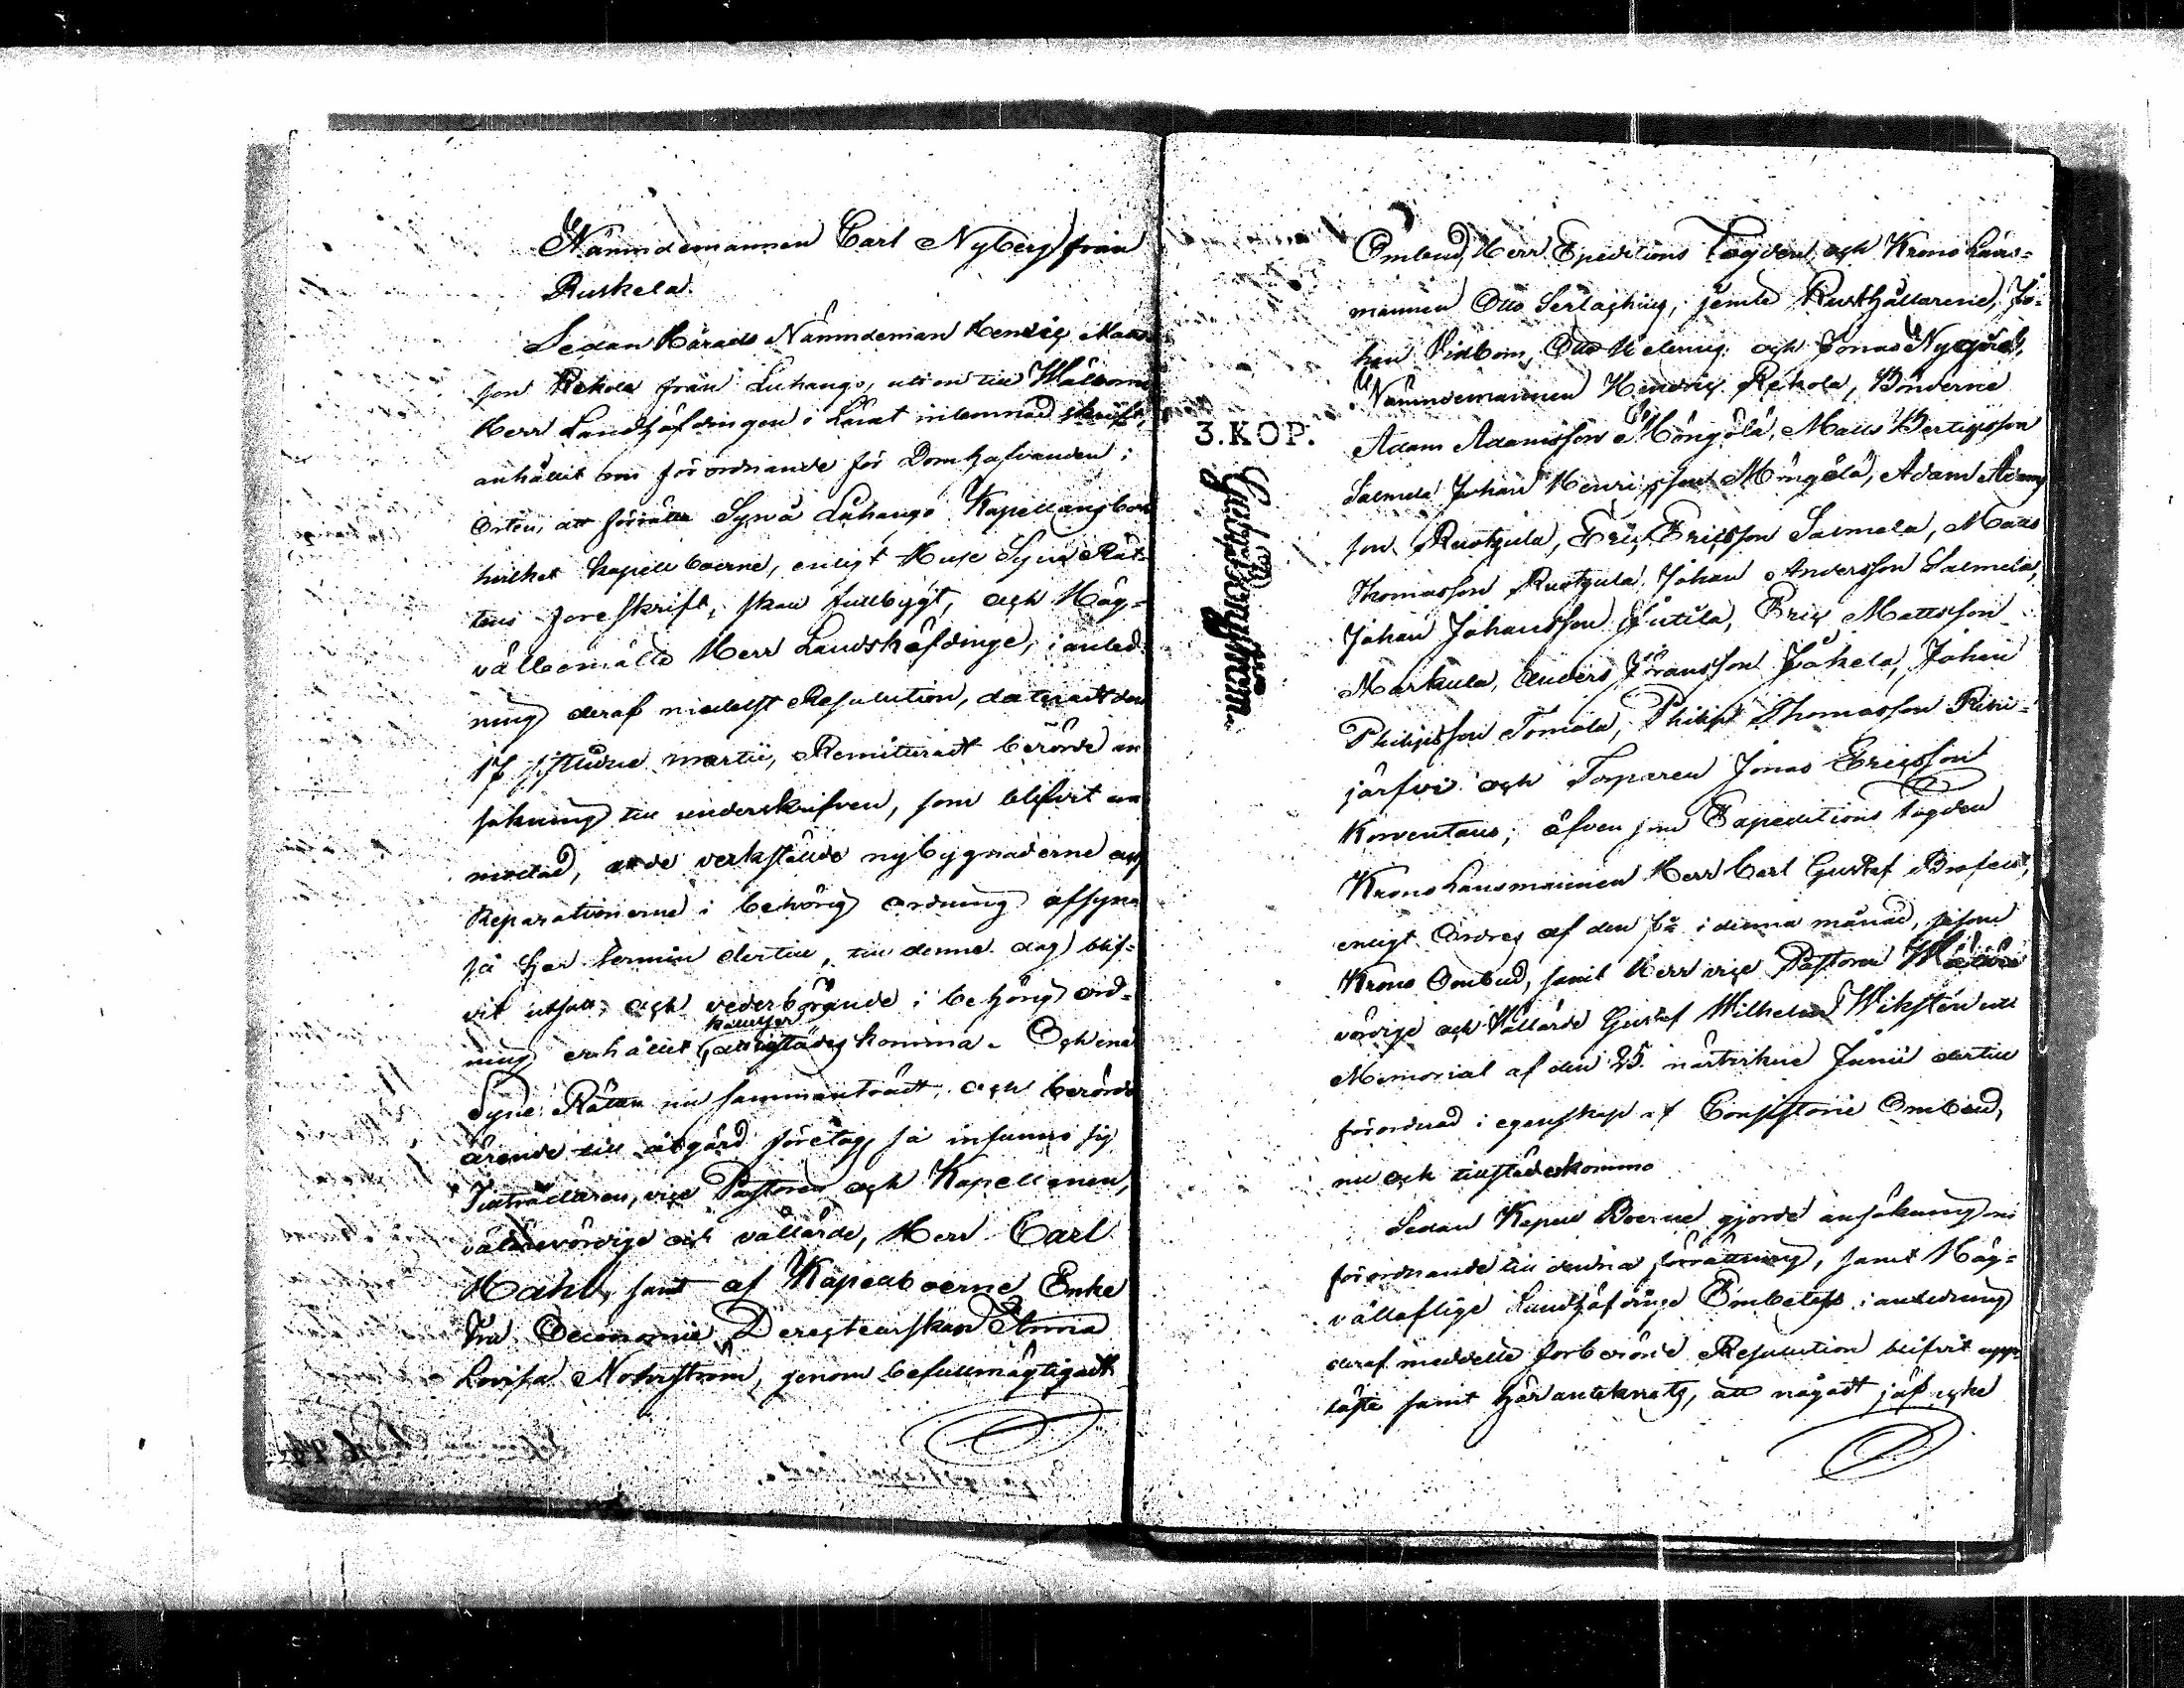 Nämndemannen Carl Nyberg från
Ruskela.
Sedan Härads Nämndeman Henric Mats
son Rekola från Luhango, uti en till Wälborne
Herr Landshöfdingen i Länet inlemnad skrift,
anhållit om förordnande för Domhafvanden i
Orten, att förrätta Syn å Luhango Kapellansbol
hvilket kapellboerne, enligt Huse Syns Rät-
tens föreskrift, skall fullbygt, och Hög-
välbemälte Herr Landshöfdinge, i anled-
ning deraf medelst Resolution, daterad den
17 sistledne martii, Remitterat berörde an
sökning till underskrifven, som blifvit an
modad, att de verkstälde nybygnaderne och
Reparationerne i behörig ordning afsyna
så har termin dertill, till denne dag blif-
vit utsatt, och vederbörande i behörig ord-
kallelser
ning erhållit att tillstädes komma. Och enär
Syne Rätten nu sammanträdt, och berörde
ärende till åtgärd företogs, så infunno sig
Tillträdaren, vice Pastoren och Kapellanen,
välärevördige och vällärde, Herr Carl
Hahl, samt af Kapellboerne Enke
Fru Oeconomie Directeurskan Anna
Lovisa Nohrström, genom befullmägtigadt
3. KOP.
Ombud, Herr Expeditions Fogden och Krono Läns-
mannen Otto Serlachius, jemte Rusthållarene, Jo-
han Vidbom, Otto Helenius och Jonas Nygård,
Nämndemannen Henric Rekola, Bönderne
Adam Adamsson Möngölä, Matts Bertilsson
Salmela Johan Henricsson Möngölä, Adam Adams
son Ruotzula, Eric Ericsson Salmela, Matts
Thomasson Ruotzula, Johan Andersson Salmela,
Johan Johansson Jutila, Eric Mattsson
Markula, Anders Göransson Jåkela, Johan
Philipsson Tomola, Philip Thomasson
järfvi och Torparen Jonas Ericsson
Korventaus; äfven som Expeditions Fogden
Krono Länsmannen Herr Carl Gustaf Brofelt,
enligt Ordres af den i denna månad, såsom
Krono Ombud, samt Herr vice Pastoren Wäläre
vördige och Vällärde Gustaf Wilhelm Wikstén uti
Memorial af den 25. nästvikne Junii dertill
förordnad i egenskap af Consistorii Ombud,
nu och tillstädeskommo
Sedan Kapell Boerne gjorde ansökning om
förordnande till denna förrättning, samt Hög-
vällofliga Landshöfdinge Embetets i anledning
deraf meddelte förberörde Resolution blifvit upp-
läste samt här antecknats, att någodt jäf icke